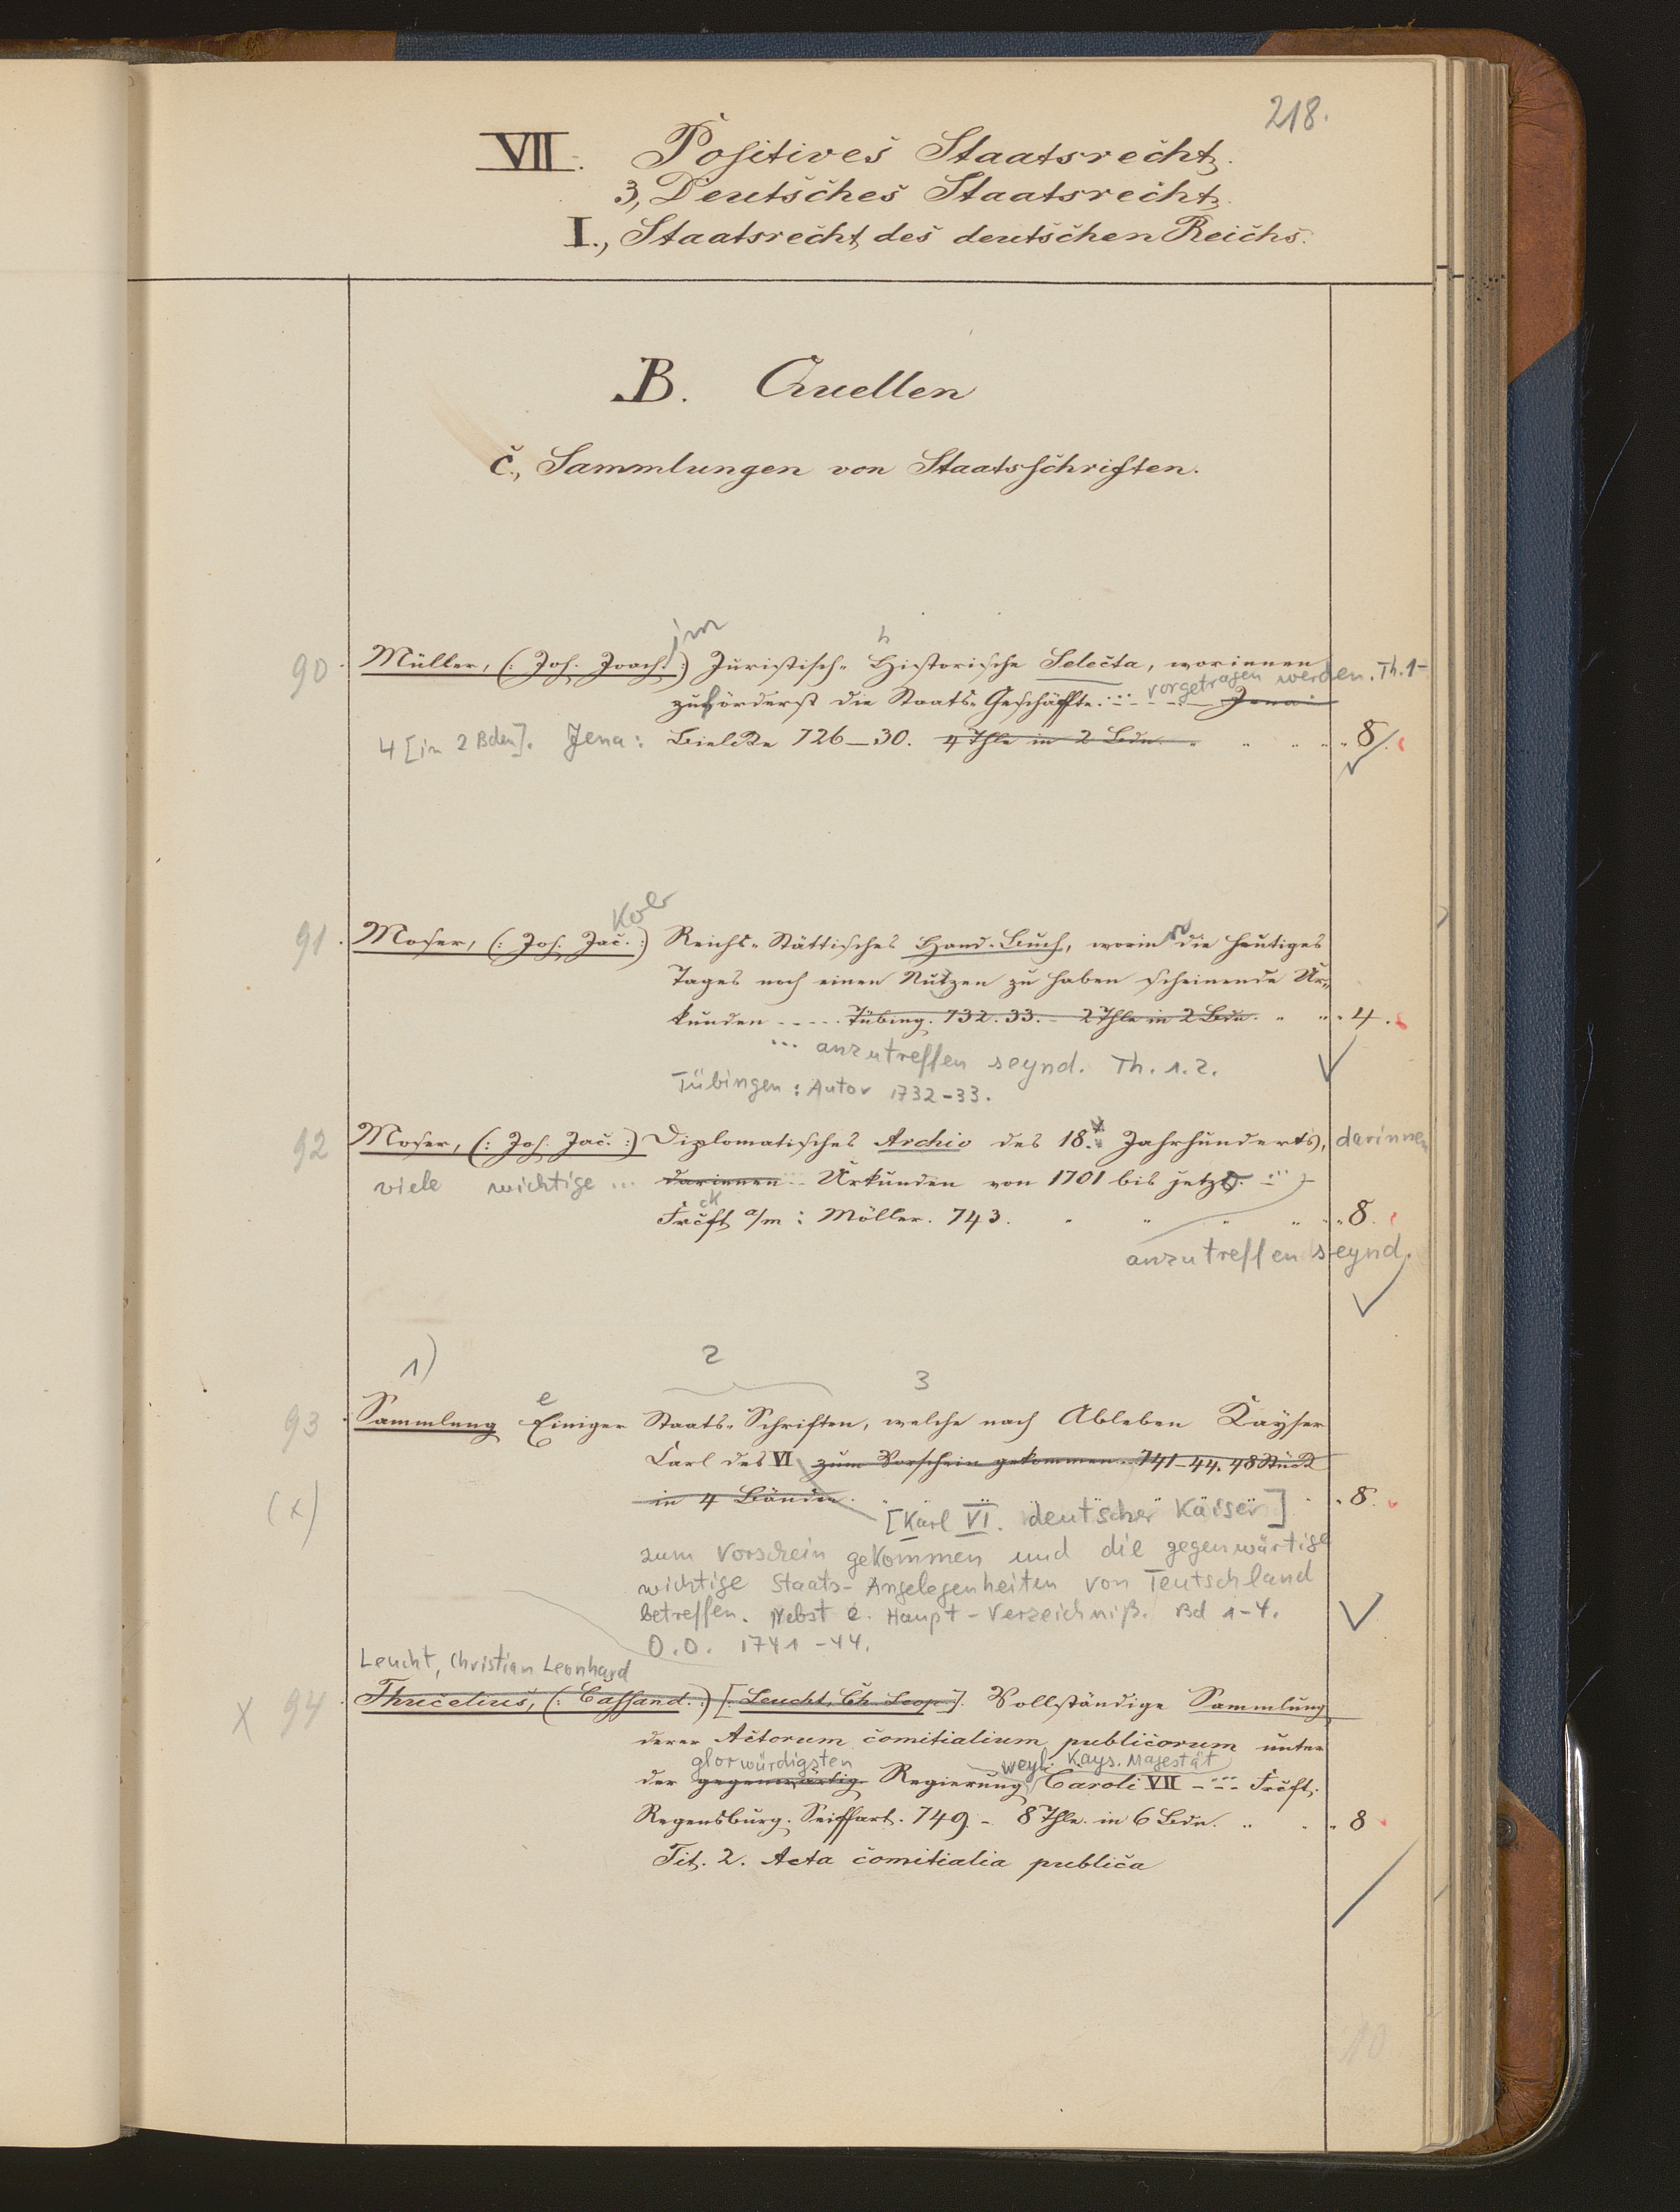 218.
VII. Positives Staatsrecht.
3, Deutsches Staatsrecht.
I., Staatsrecht des deutschen Reichs.
B. Quellen
c., Sammlungen von Staatsschriften.
jm h
90. Müller, (: Joh. Joach. :) Juristisch-Historische Selecta, worinnen
vorgetragen werden. Th. 1-
zuförderst die Staats-Geschäffte. ... Jena:
4 [in 2 Bden]. Jena: Bielcke 726-30. 4 Thle in 2 Bdn. 8.
91. Moser, (: Joh. Jac. :) Reichs-Stättisches Hand-Buch, worinn die heutiges
Tages noch einen Nutzen zu haben scheinende Ur-
kunden ..... Tübing. 732. 33. - 2 Thle in 2 Bdn. 4.
... anzutreffen seynd. Th. 1. 2.
Tübingen: Autor 1732-33.
92 Moser, (: Joh. Jac. :) Diplomatisches Archiv des 18. Jahrhunderts, darinnen
viele wichtige ... darinnen ... Urkunden von 1701 bis jetzo. ...
ck
Frcft a/m: Möller. 743. 8.
anzutreffen seynd.
1) 2 3
e
93. Sammlung Einiger Staats-Schriften, welche nach Ableben Kayser
Carl des VI zum Vorschein gekommen .. 741-44. 48 Stück
(x) in 4 Bänden. 8.
[Karl VI. deutscher Kaiser]
zum Vorschein gekommen und die gegenwärtige
wichtige Staats-Angelegenheiten von Teutschland
betreffen. Nebst e. Haupt-Verzeichniß. Bd 1-4.
O.O. 1741-44.
Leucht, Christian Leonhard
X 94. Thucelius, (: Cassand. :) [: Leucht, Ch. Leop :]. Vollständige Sammlung
derer Actorum comitialium publicorum unter
glorwürdigsten weyl. Kays. Majestät
der gegenwärtig Regierung Caroli VII - ... - Frcft.
Regensburg. Seiffart. 749. - 8 Thle. in 6 Bdn. 8
Tit. 2. Acta comitialia publica
10